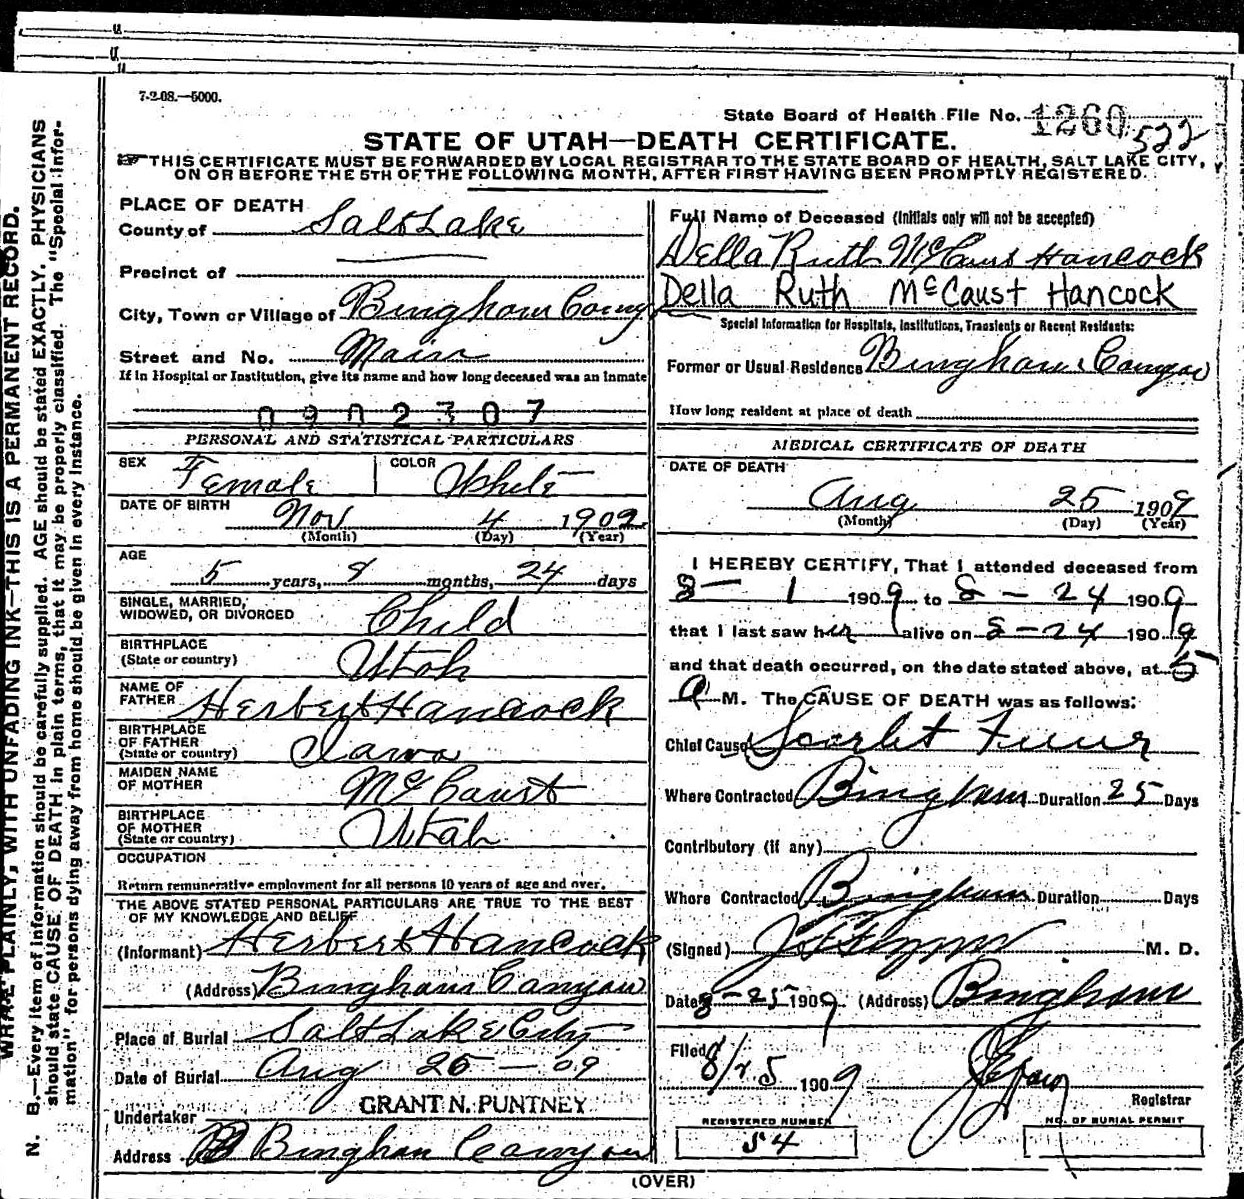 7-2-08.—5000.
State Board of Health File No. 1260 522
STATE OF UTAH—DEATH CERTIFICATE.
THIS CERTIFICATE MUST BE FORWARDED BY LOCAL REGISTRAR TO THE STATE BOARD OF HEALTH, SALT LAKE CITY,
ON OR BEFORE THE 5TH OF THE FOLLOWING MONTH, AFTER FIRST HAVING BEEN PROMPTLY REGISTERED.
PLACE OF DEATH
County of Salt Lake
Precinct of
City, Town or Village of Bingham Cany
Street and No. Main
If in Hospital or Institution, give its name and how long deceased was an inmate
0902307
PERSONAL AND STATISTICAL PARTICULARS
SEX Female COLOR White
DATE OF BIRTH Nov 4 1902
(Month) (Day) (Year)
AGE 5 years, 9 months, 24 days
SINGLE, MARRIED, WIDOWED, OR DIVORCED Child
BIRTHPLACE (State or country) Utah
NAME OF FATHER Herbert Hancock
BIRTHPLACE OF FATHER (State or country) Iawa
MAIDEN NAME OF MOTHER McCaust
BIRTHPLACE OF MOTHER (State or country) Utah
OCCUPATION
Return remunerative employment for all persons 10 years of age and over.
THE ABOVE STATED PERSONAL PARTICULARS ARE TRUE TO THE BEST
OF MY KNOWLEDGE AND BELIEF
(Informant) Herbert Hancock
(Address) Bingham Canyon
Place of Burial Salt Lake City
Date of Burial Aug 26 — 09
Undertaker GRANT N. PUNTNEY
Address Bingham Canyon
Full Name of Deceased (Initials only will not be accepted)
Della Ruth McCaust Hancock
Della Ruth McCaust Hancock
Special Information for Hospitals, Institutions, Transients or Recent Residents:
Former or Usual Residence Bingham Canyon
How long resident at place of death
MEDICAL CERTIFICATE OF DEATH
DATE OF DEATH
Aug 25 1909
(Month) (Day) (Year)
I HEREBY CERTIFY, That I attended deceased from
8 — 1 1909 to 8 — 24 1909
that I last saw her alive on 8 — 24 1909
and that death occurred, on the date stated above, at 5
a M. The CAUSE OF DEATH was as follows:
Chief Cause Scarlet Fever
Where Contracted Bingham Duration 25 Days
Contributory (if any)
Where Contracted Bingham Duration Days
(Signed) M. D.
Date 8-25 1909 (Address) Bingham
Filed 8/25 1909
Registrar
REGISTERED NUMBER
54
NO. OF BURIAL PERMIT
(OVER)
WRITE PLAINLY, WITH UNFADING INK—THIS IS A PERMANENT RECORD.
N. B.—Every item of information should be carefully supplied. AGE should be stated EXACTLY. PHYSICIANS
should state CAUSE OF DEATH in plain terms, that it may be properly classified. The "Special Infor-
mation" for persons dying away from home should be given in every instance.